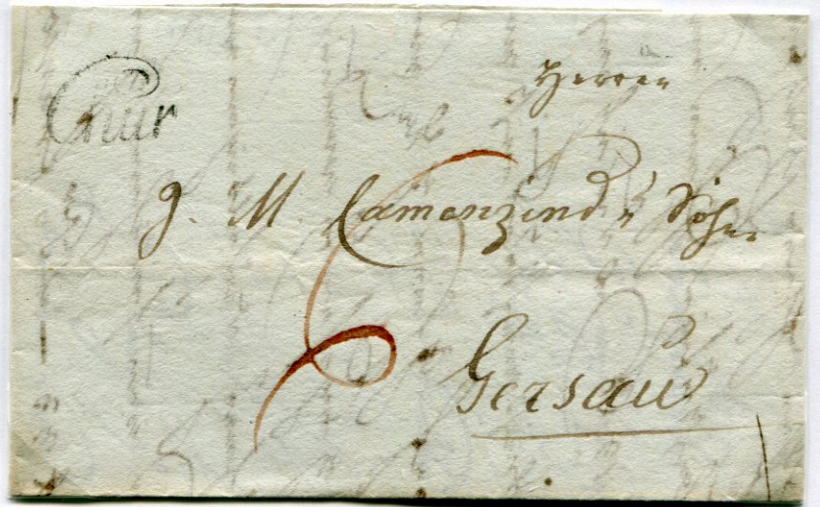 Chur
Herren
J. M. Camenzind's Söhne
Gersau
6